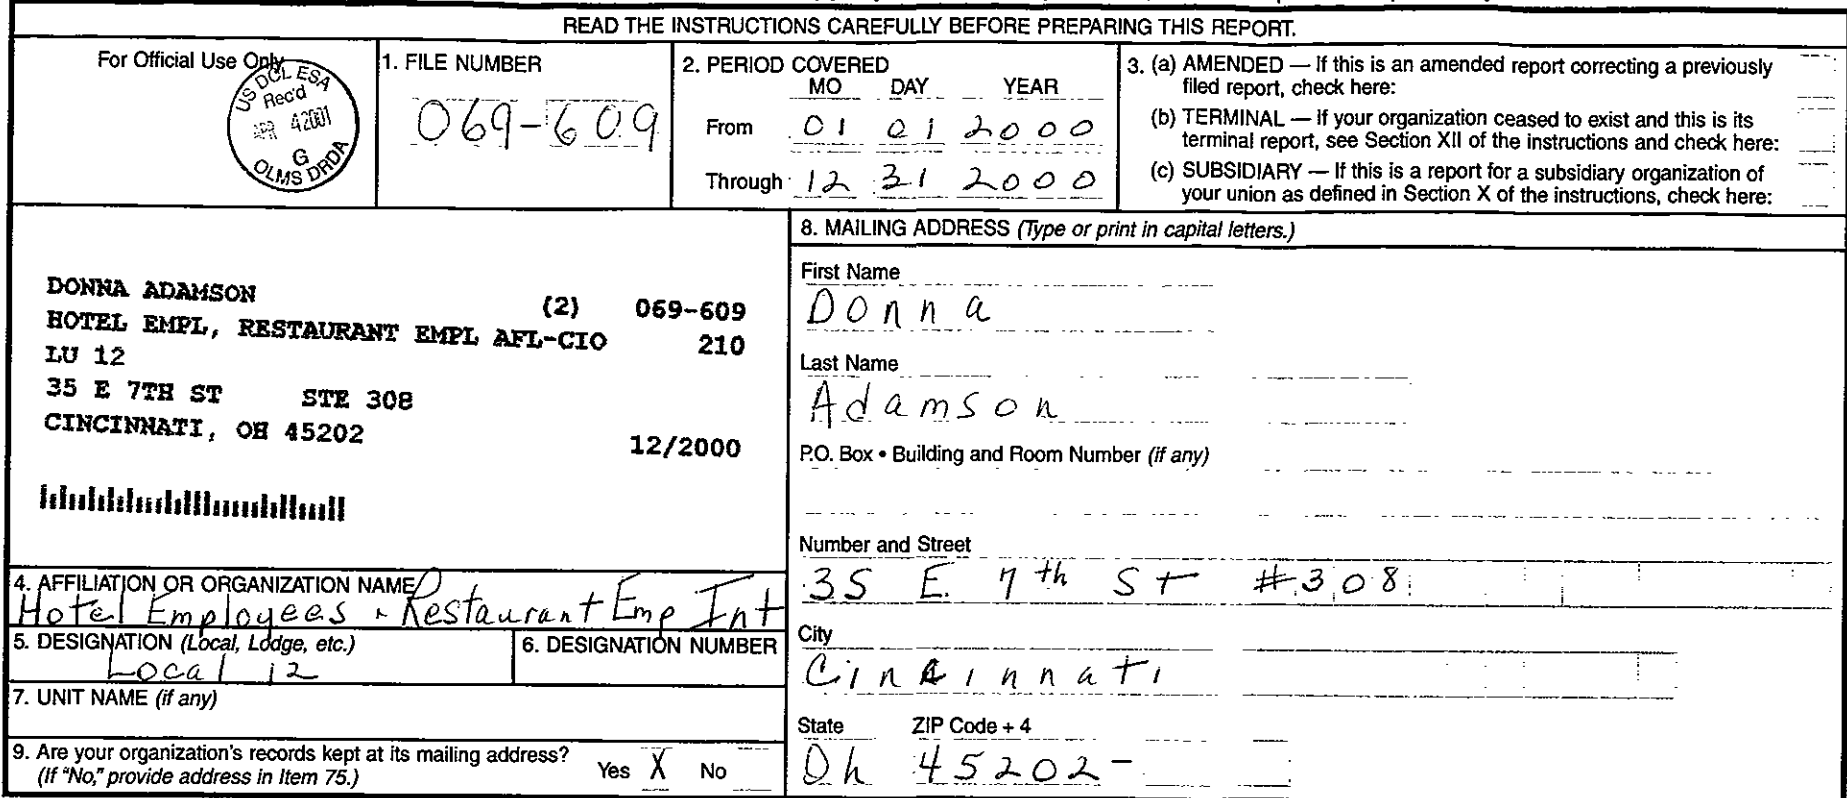 READ THE INSTRUCTIONS CAREFULLY BEFORE PREPARING THIS REPORT.
For Official Use Only
US DOL ESA
Rec'd
APR 4 2001
G
OLMS DRDA
1. FILE NUMBER
069-609
2. PERIOD COVERED
MO DAY YEAR
From 01 01 2000
Through 12 31 2000
3. (a) AMENDED — If this is an amended report correcting a previously
filed report, check here:
(b) TERMINAL — If your organization ceased to exist and this is its
terminal report, see Section XII of the instructions and check here:
(c) SUBSIDIARY — If this is a report for a subsidiary organization of
your union as defined in Section X of the instructions, check here:
DONNA ADAMSON (2) 069-609
HOTEL EMPL, RESTAURANT EMPL AFL-CIO 210
LU 12
35 E 7TH ST STE 308
CINCINNATI, OH 45202
12/2000
4. AFFILIATION OR ORGANIZATION NAME
Hotel Employees + Restaurant Emp Int
5. DESIGNATION (Local, Lodge, etc.)
Local 12
6. DESIGNATION NUMBER
7. UNIT NAME (if any)
9. Are your organization's records kept at its mailing address?
(If "No," provide address in Item 75.)
Yes X No
8. MAILING ADDRESS (Type or print in capital letters.)
First Name
Donna
Last Name
Adamson
P.O. Box • Building and Room Number (if any)
Number and Street
35 E. 7th St #308
City
Cincinnati
State ZIP Code + 4
Oh 45202-